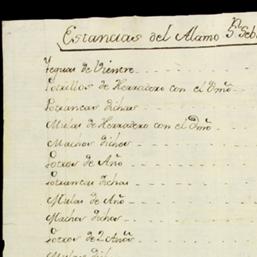 Estancias del Alamo Sn Seb
Yeguas de Vientre
Potrillos de Herradero con el Dmo
Potrancas dichas
Mulas de Herradero con el Dmo
Machos dichos
Potros de Año
Potrancas dichas
Mulas de Año
Machos dichos
Potros de 2 Años
Mulas dichas